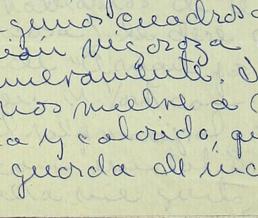 gunos cuadros
vigoroza
meramente.
nos vuelve a
a y colorido, qu
guarda de inc